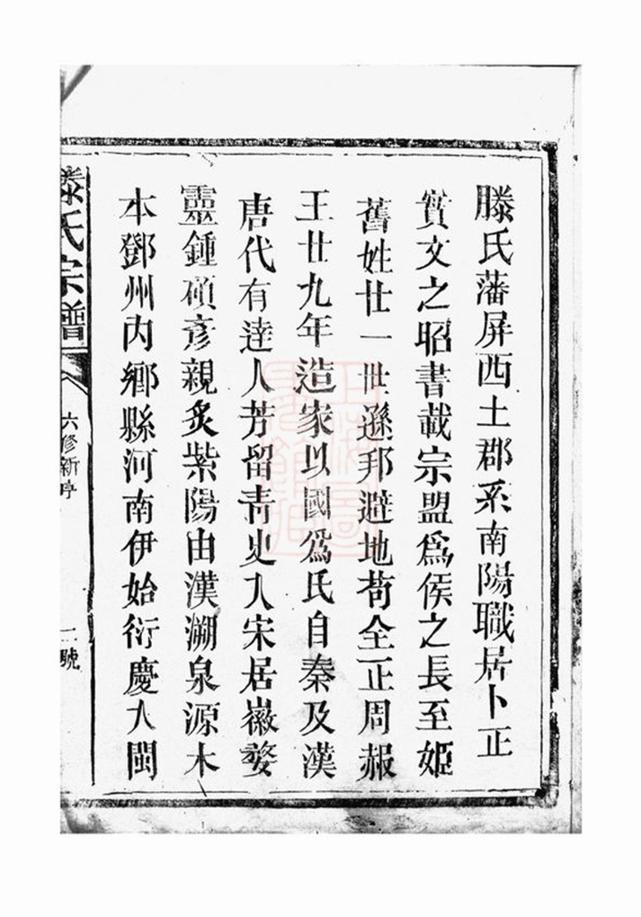 滕氏藩屏西土郡系南陽職居卜正
實文之昭書載宗盟為侯之長至姬
舊姓廿一世遜邦避地苟全正周赧
王廿九年造家以國為氏自秦及漢
唐代有達人芳留青史入宋居徽婺
靈鍾碩彥親炙紫陽由漢溯泉源木
本鄧州內鄉縣河南伊始衍慶入閩
滕氏宗譜
六修新序
一號